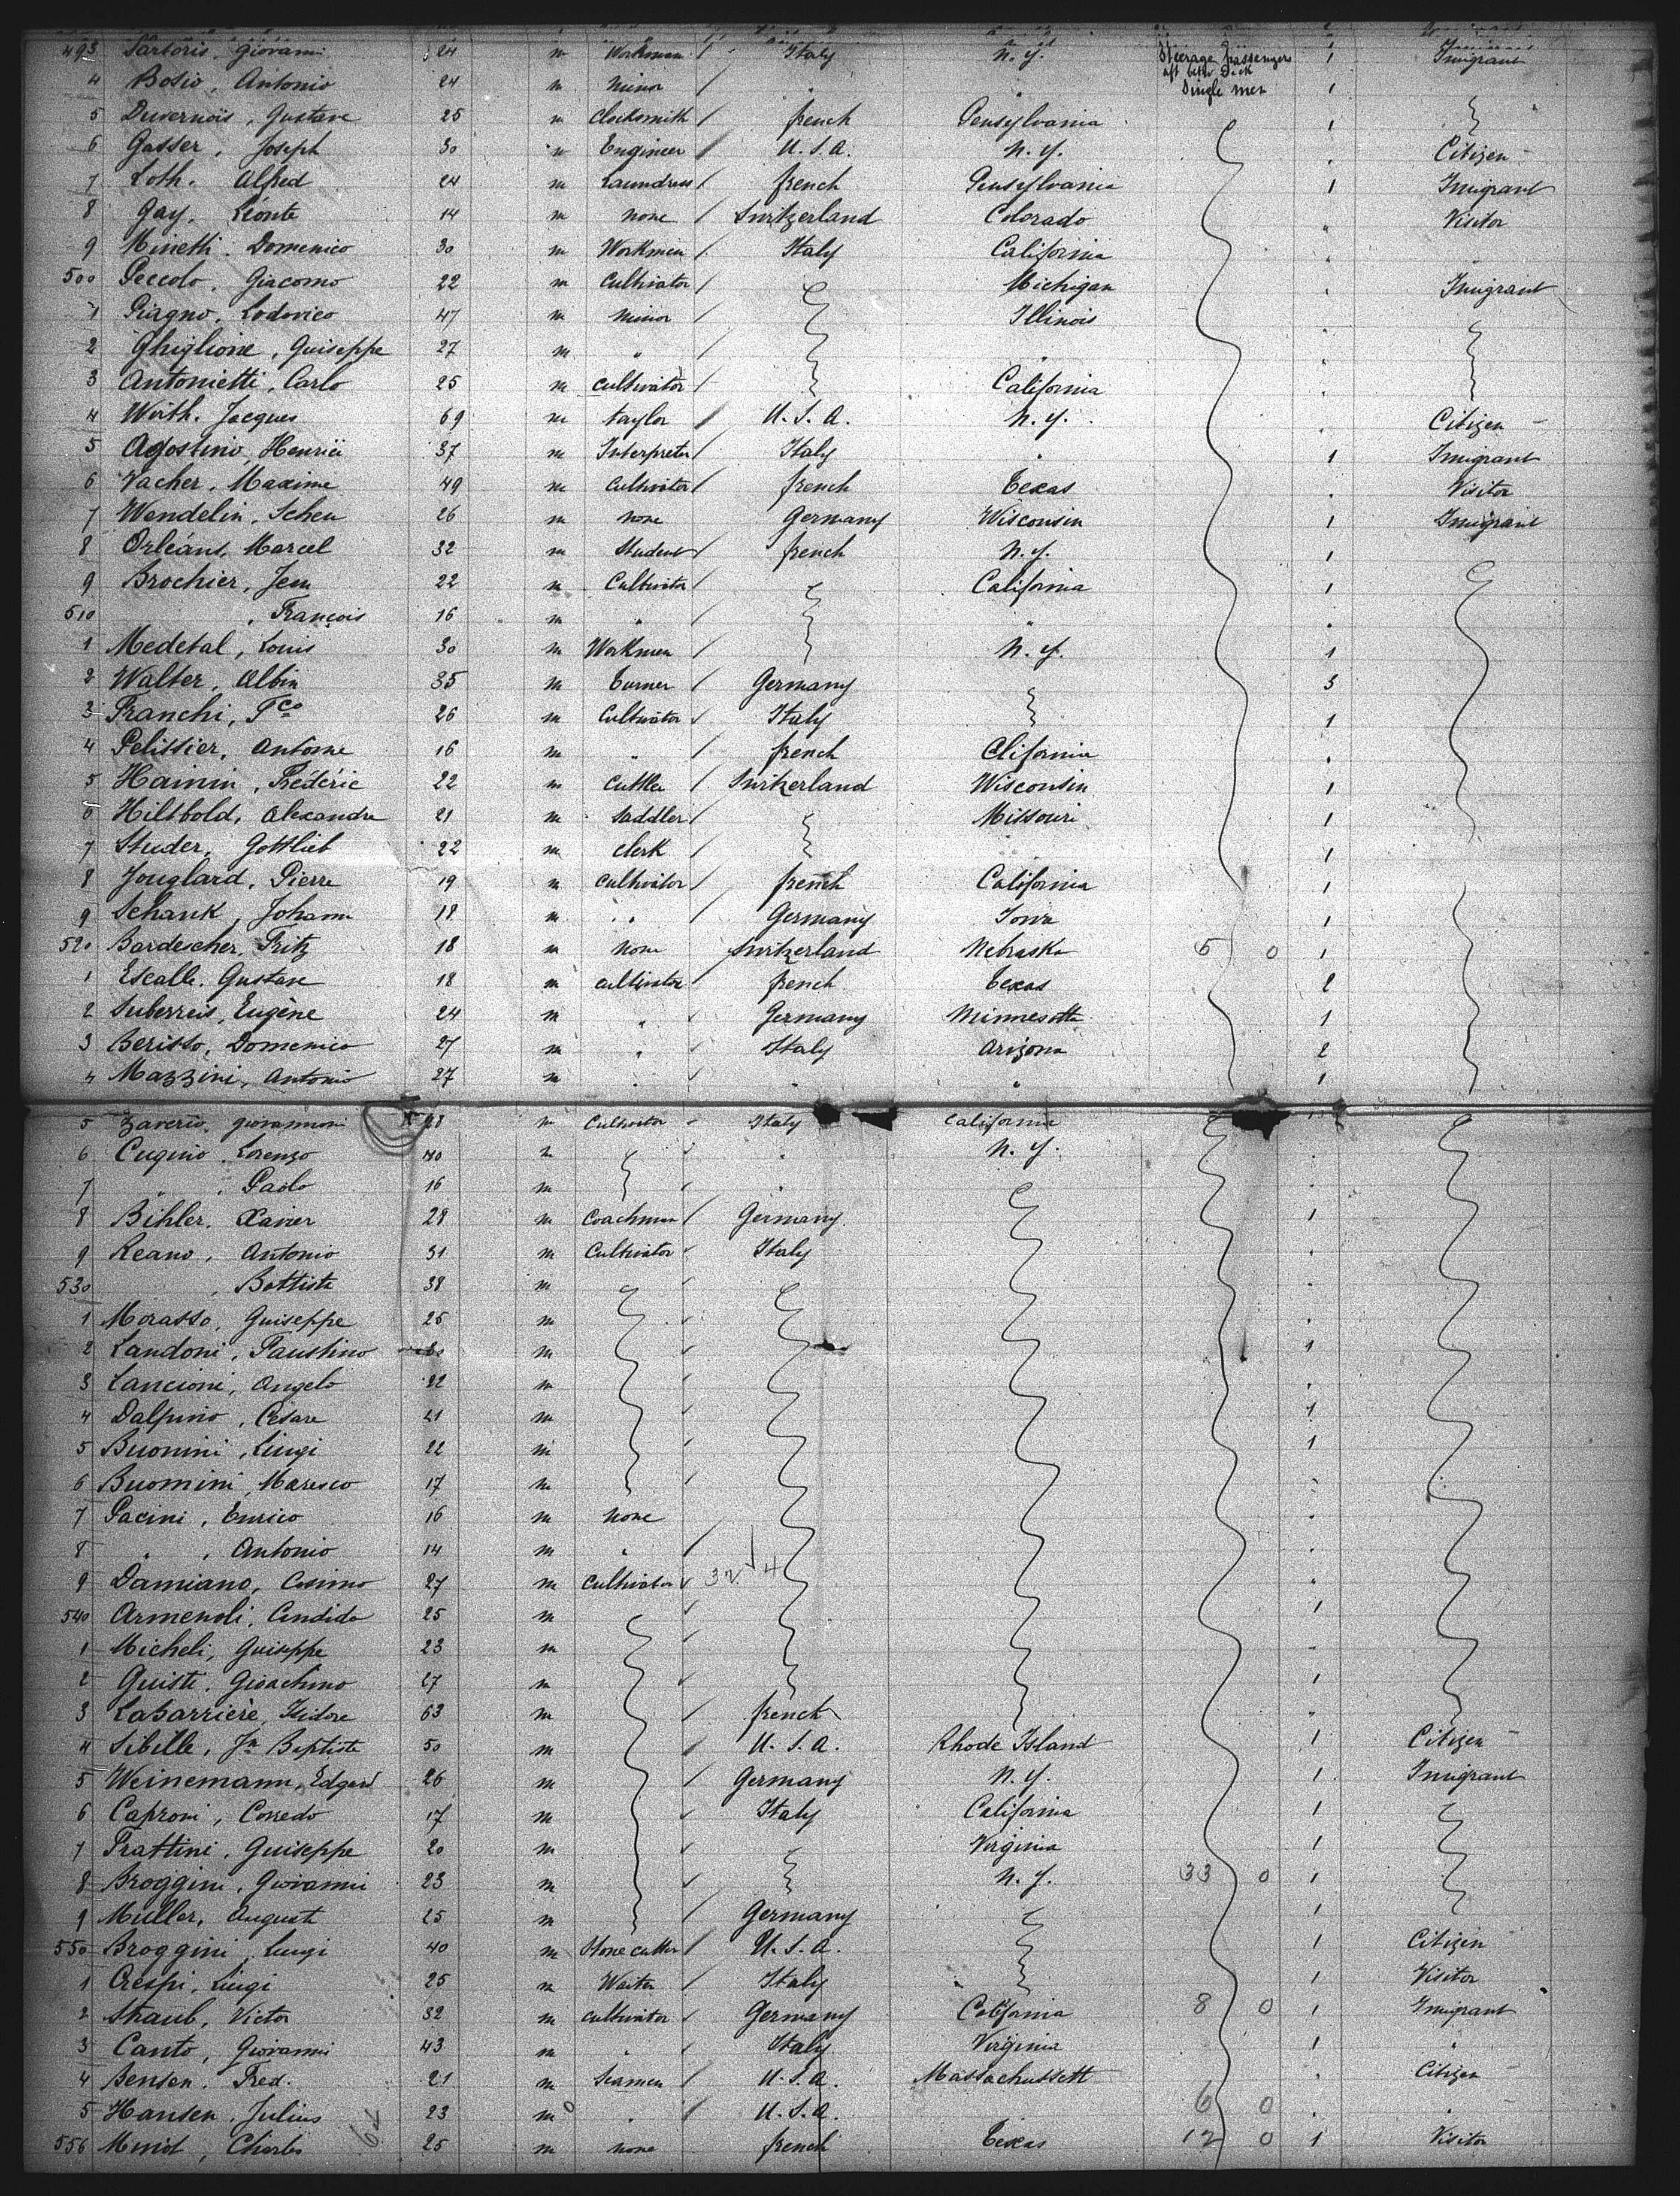 493 Sartoris, Giovanni 24 m Workman / Italy N.Y. Steerage passengers 1 Imigrant
aft betw Deck
4 Bosio, Antonio 24 m minor / " " Single men 1
5 Duvernois, Gustave 25 m Clocksmith / french Pensylvania 1
6 Gasser, Joseph 30 m Engineer / U.S.A. N.Y. Citizen
7 Loth. Alfred 24 m Laundress / french Pensylvania 1 Imigrant
8 Gay, Léonte 14 m none / Switzerland Colorado " Visitor
9 Minetti. Domenico 30 m Workmen / Italy California
500 Peccolo, Giacomo 22 m Cultivator / Michigan Imigrant
1 Giagno, Lodovico 47 m minor / Illinois
2 Ghiglione, Guiseppe 27 m " / "
3 Antonietti, Carlo 25 m cultivator / California
4 Wirth. Jacques 69 m taylor / U.S.A. N.Y. Citizen
5 Agostino, Henrici 37 m Interpreter / Italy " 1 Imigrant
6 Vacher, Maxime 49 m Cultivator / french Texas Visitor
7 Wendelin, Scheu 26 m none / Germany Wisconsin 1 Imigrant
8 Orléans, Marcel 32 m Student / french N.Y. 1
9 Brochier, Jean 22 m Cultivator / California 1
510 , François 16 m " / "
1 Medetal, Louis 30 m Workmen / N.Y. 1
2 Walter, Albin 35 m Turner / Germany 3
3 Franchi, Fco 26 m Cultivator ✓ Italy 1
4 Pelissier, Antoine 16 m " / french Clifornia
5 Hainin, Frédéric 22 m Cuttler / Switzerland Wisconsin 1
6 Hiltbold, Alexandre 21 m Saddler / Missouri 1
7 Studer, Gottlieb 22 m clerk / 1
8 Jouglard, Pierre 19 m cultivator / french California 1
9 Schank, Johann 18 m " / Germany Iowa 1
520 Bardescher, Fritz 18 m none / Switzerland Nebraska 5 0 1
1 Escalle. Gustave 18 m cultivator / french Texas 2
2 Suberreis, Eugène 24 m " ✓ Germany Minnesotta 1
3 Berisso, Domenico 27 m " ✓ Italy Arizona 2
4 Mazzini, Antonio 27 m " ✓ " " 1
5 Zaverio, giovannoni X 28 m Cultivator Italy California
6 Cugino, Lorenzo 40 m ✓ " N.Y.
7 " , Paolo 16 m ✓ "
8 Bihler, Xavier 28 m Coachman / Germany 1
9 Reano, Antonio 31 m Cultivator ✓ Italy
530 , Battista 38 m ✓
1 Morasso, Guiseppe 25 m ✓
2 Landoni, Faustino m ✓ 1
3 Lancioni, Angelo 22 m ✓
4 Dalpino, Césare 21 m ✓ 1
5 Buonini, Luigi 22 m ✓ 1
6 Buomini, Maresco 17 m ✓
7 Pacini, Enrico 16 m none
8 " , Antonio 14 m " /
9 Damiano, Cosimo 27 m Cultivator ✓ 32 4 "
540 Armenoli, Candido 25 m ✓ 1
1 Micheli, Guiseppe 23 m ✓
2 Guisti, Gioachino 27 m ✓ 1
3 Labarrière, Isidore 63 m / french "
4 Sibille, Jn Baptiste 50 m / U.S.A. Rhode Island 1 Citizen
5 Weinemann, Edgard 26 m / Germany N.Y. 1 Imigrant
6 Caproni, Corredo 17 m ✓ Italy California 1
7 Frattini, Guiseppe 20 m ✓ Virginia 1
8 Broggini, Giovanni 23 m ✓ N.Y. 33 0 1
9 Müller, Auguste 25 m / Germany 1
550 Broggini, Luigi 40 m Stone cutter / U.S.A. 1 Citizen
1 Crespi, Luigi 25 m Waiter / Italy 1 Visitor
2 Straub, Victor 32 m cultivator ✓ Germany California 8 0 1 Imigrant
3 Canto, Giovanni 43 m " ✓ Italy Virginia 1 "
4 Bensen, Fred. 21 m Seamen / U.S.A. Massachussett Citizen
5 Hansen, Julius 23 m " / U.S.A. 6 0 "
556 Muriot, Charles 25 m none french Texas 12 0 1 Visitor